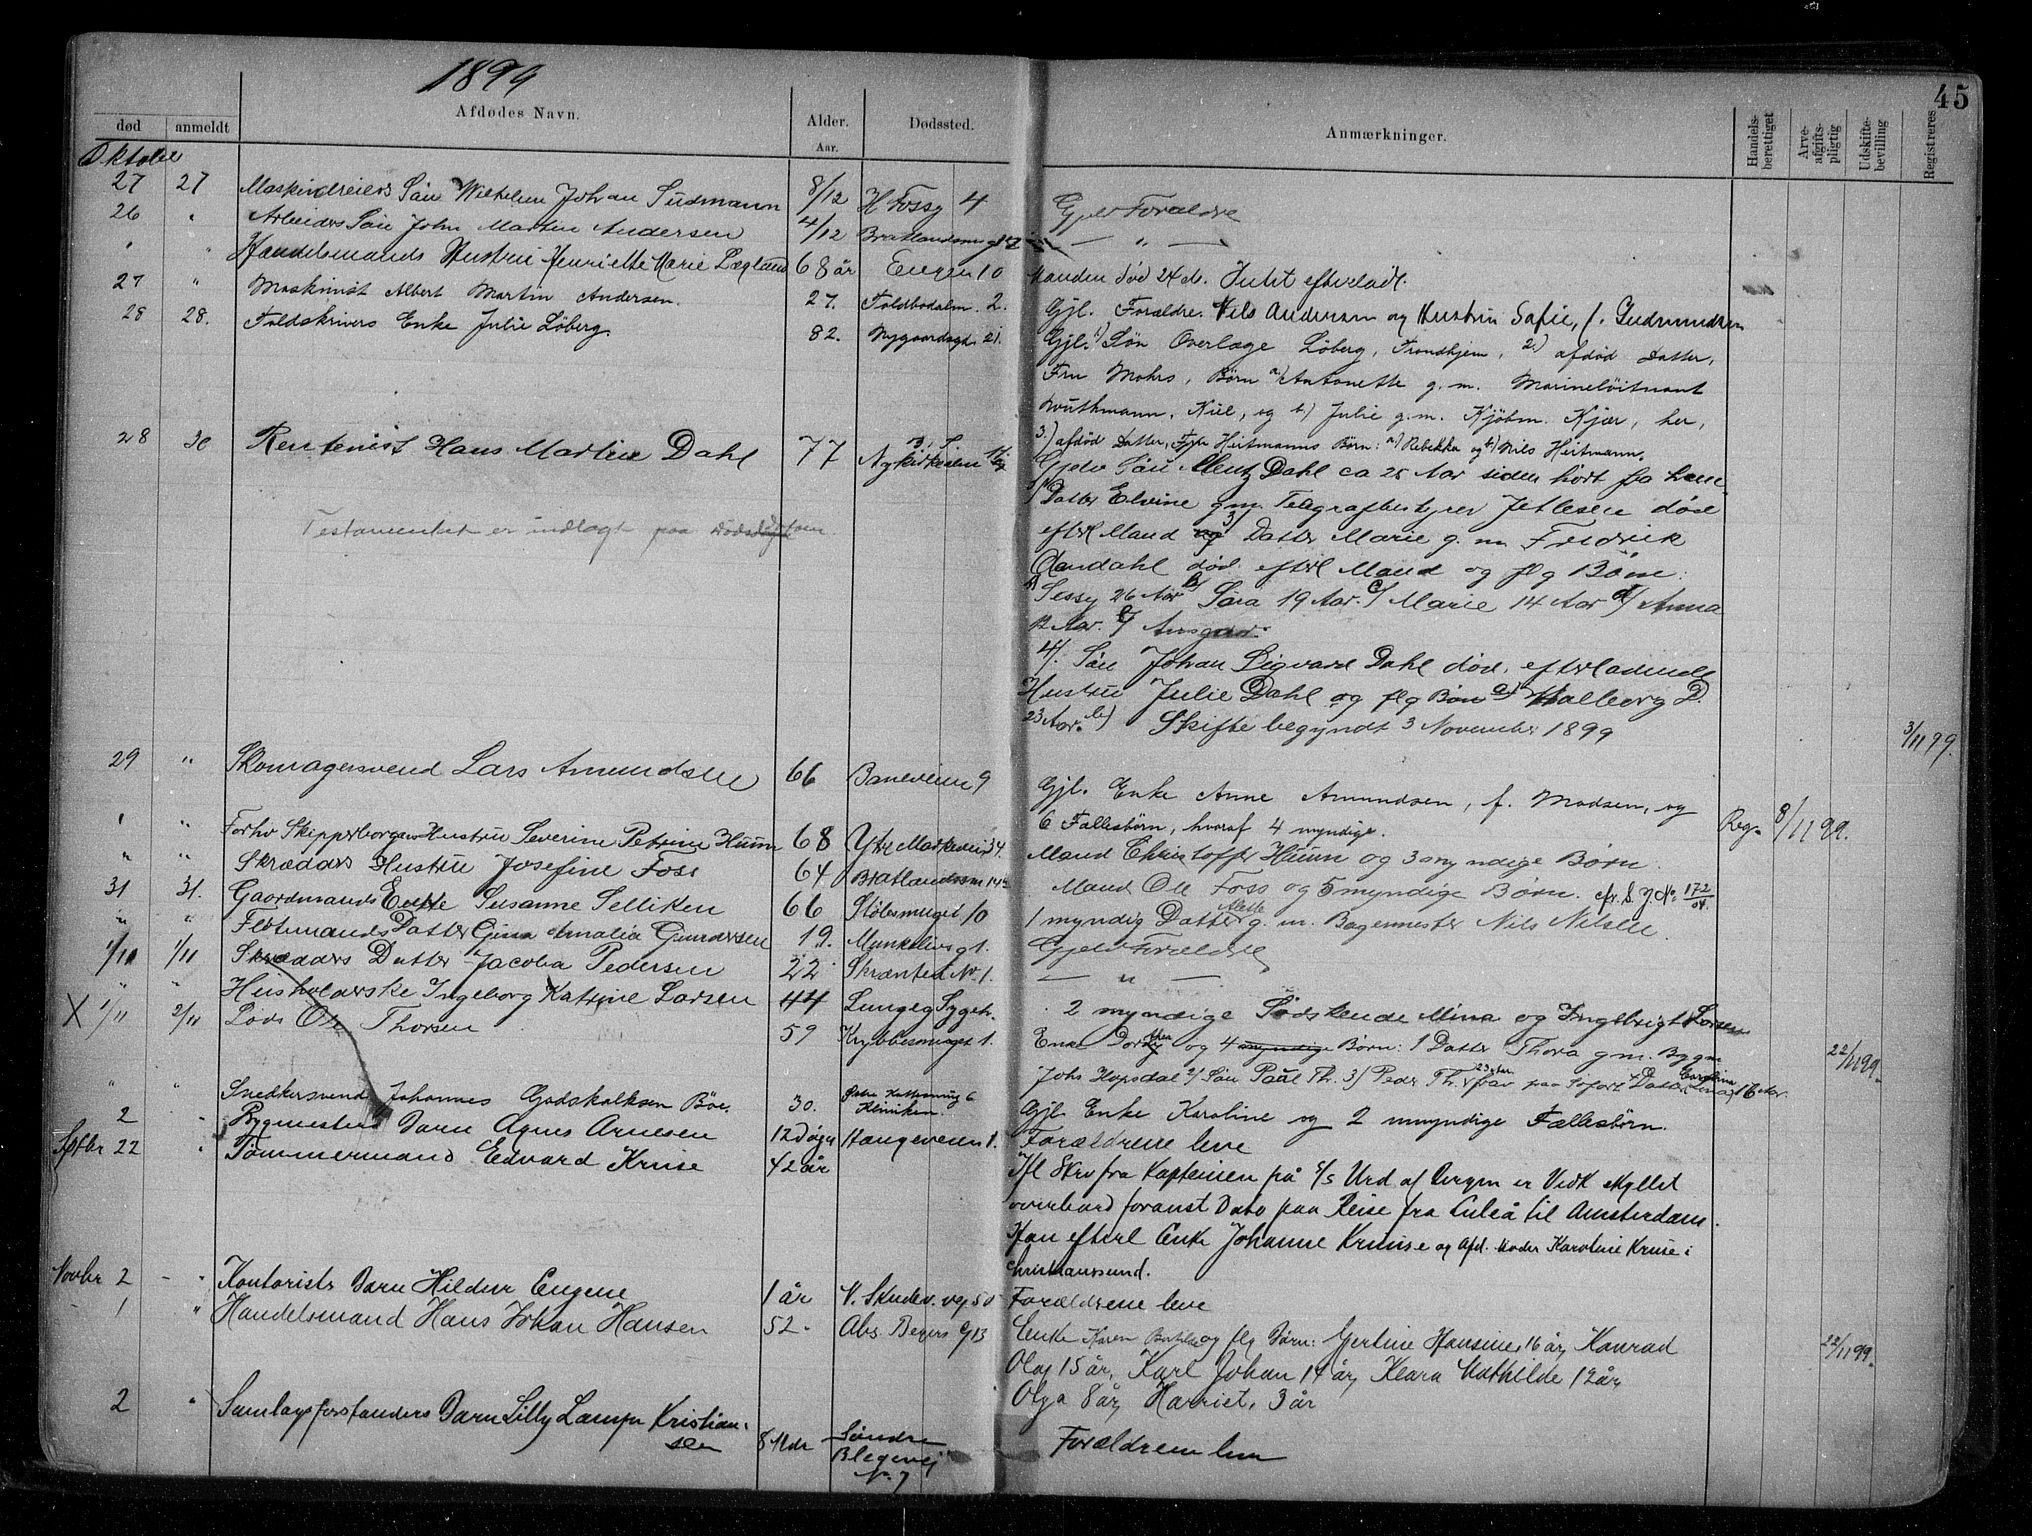 1899
45
død
anmeldt
Afdødes Navn.
Alder.
Aar.
Dødssted.
Anmærkninger.
Handels-berettiget
Arve-afgifts-pligtig
Udskifte-bevilling
Registreres
Oktober
27 27 Maskindreiers Søn Wilhelm Johan Sudmann 8/12 H Fossg 4 Gjelv Forældre
26 " Arbeiders Søn John Martin Andersen 4/12 Bratlandsmug — " —
" " Handelsmands Hustru Henriette Marie Lægland 68 år Engen 10 Manden død 24 ds. Intet efterladt.
27 " Maskinist Albert Martin Andersen. 27. Toldbodalm. 2. Gjl. Forældre. Nils Andersen og Hustru Sofie, f. Gudmundsen
28 28. Toldskrivers Enke Julie Løberg. 82. Nygaardsgt. 21. Gjl. 1) Søn Overlæge Løberg, Trondhjem, 2.) afdød Datter,
Fru Mohrs, Børn a) Antonette g. m. Marineløitnant
Wuthmann, Kiel, og b) Julie g. m. Kjøbm. Kjær, her,
3.) afdød Datter, Heitmanns Børn: a) Rebekka og b) Nils Heitmann.
28 30 Rentenist Hans Martin Dahl 77 Nykirkealm Gjelv Søn Mentz Dahl ca 25 Aar siden hørt fra
Datter Elvine gm. Telegrafbestyrer Jetlesen død
Testamentet er indlagt paa
efterl Mand og 3) Datter Marie g. m. Fredrik
Aandahl død. efterl Mand og flg Børn:
a) Sessy 26 Aar b) Sara 19 Aar. c) Marie 14 Aar d) Anna
12 Aar. e) Ansgar.
4). Søn Johan Sigvard Dahl død, efterladende
Hustru Julie Dahl og flg Børn a) Valborg D.
23 Aar. b) Skifte begyndt 3 November 1899 3/11 99.
29 " Skomagersvend Lars Amundsen 66 Baneveien 9 Gjl. Enke Anne Amundsen, f. Madsen, og
6 Fællesbørn, hvoraf 4 myndige. Reg. 8/11 99.
" " Forhv Skipperborgers Hustru Severine Petrine Huun 68 Ytre Markevei 34. Mand Christoffer Huun og 3 myndige Børn.
" " Skrædders Hustru Josefine Foss 64 Bratlandsm 14 Mand Ole Foss og 5 myndige Børn. cfr. S. J. No 172/04.
31 31. Gaardmands Enke Susanne Selliken 66 Støbesmuget 10 1 myndig Datter Alette g. m. Bagermester Nils Nilsen
" " Datter Gina Amalia Gundersen 19. Munkelivsg 1. Gjelv Forældre
1/11 1/11 Skrædders Datter Jacoba Pedersen 22 Skrænten No 1. — " —
" " Husholderske Ingeborg Katrine Larsen 44 Lungeg Sygeh. 2 myndige Sødskende Mina og Ingebrigt Larsen
X 1/11 2/11 Lods Ole Thorsen 59 Krybbesmuget 1. Enke Dorthea og 4 myndige Børn: 1 Datter Thora g m. Bygm
Johs Hopsdal 2) Søn Paul Th. 3) Peder Th. 23 Aar far paa Sofart Datter Lina 16 Aar. 22/11 99.
" " Snedkersvend Johannes Godskalksen Bøe. 30. Østre Kliniken. Gjl. Enke Karoline og 2 umyndige Fællesbørn.
2 " Bygmesters Barn Agnes Arnesen 12 Døgn Haugeveien 1. Forældrene leve
Sptbr 22 " Tømmermand Edvard Kruse 42 år Ifl Skrv fra Kapteinen på S/s Urd af Bergen er Vedk skyllet
overbord foranst Dato paa Reise fra Luleå til Amsterdam.
Han efterl Enke Johanne Kruuse og Afd. Moder Karoline Kruse i
Christianssund.
Novbr 2 " Kontorists Barn Hildur Eugene 1 år N. Skudev. vej 50 Forældrene leve
1 " Handelsmand Hans Johan Hansen 52. Abs. Beyers G 13 Enke Karen og flg Børn: Gjertine Hansine 16 år, Konrad
Olaf 15 år, Karl Johan 14 år, Klara Mathilde 12 år 22/11 99.
Olga 8 år, Harriet. 3 år
2 " Samlagsforstanders Barn Lilly Lampe Kristian-
sen 8 Mdr Søndre
Blegevej
No. 7 Forældrene leve